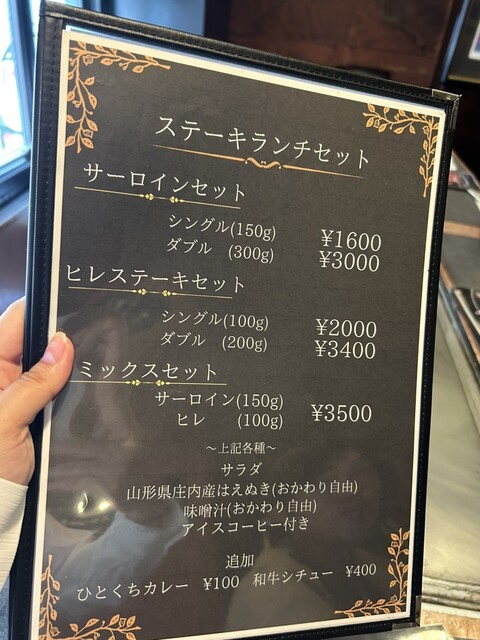 ステーキランチセット
サーロインセット
シングル(150g) ¥1600
ダブル (300g) ¥3000
ヒレステーキセット
シングル(100g) ¥2000
ダブル (200g) ¥3400
ミックスセット
サーロイン(150g)
ヒレ (100g) ¥3500
～上記各種～
サラダ
山形県庄内産はえぬき(おかわり自由)
味噌汁(おかわり自由)
アイスコーヒー付き
追加
ひとくちカレー ¥100 和牛シチュー ¥400